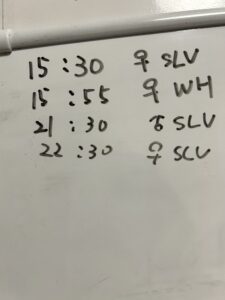 15:30 ♀ SLV
15:55 ♀ WH
21:30 ♂ SLV
22:30 ♀ SLV